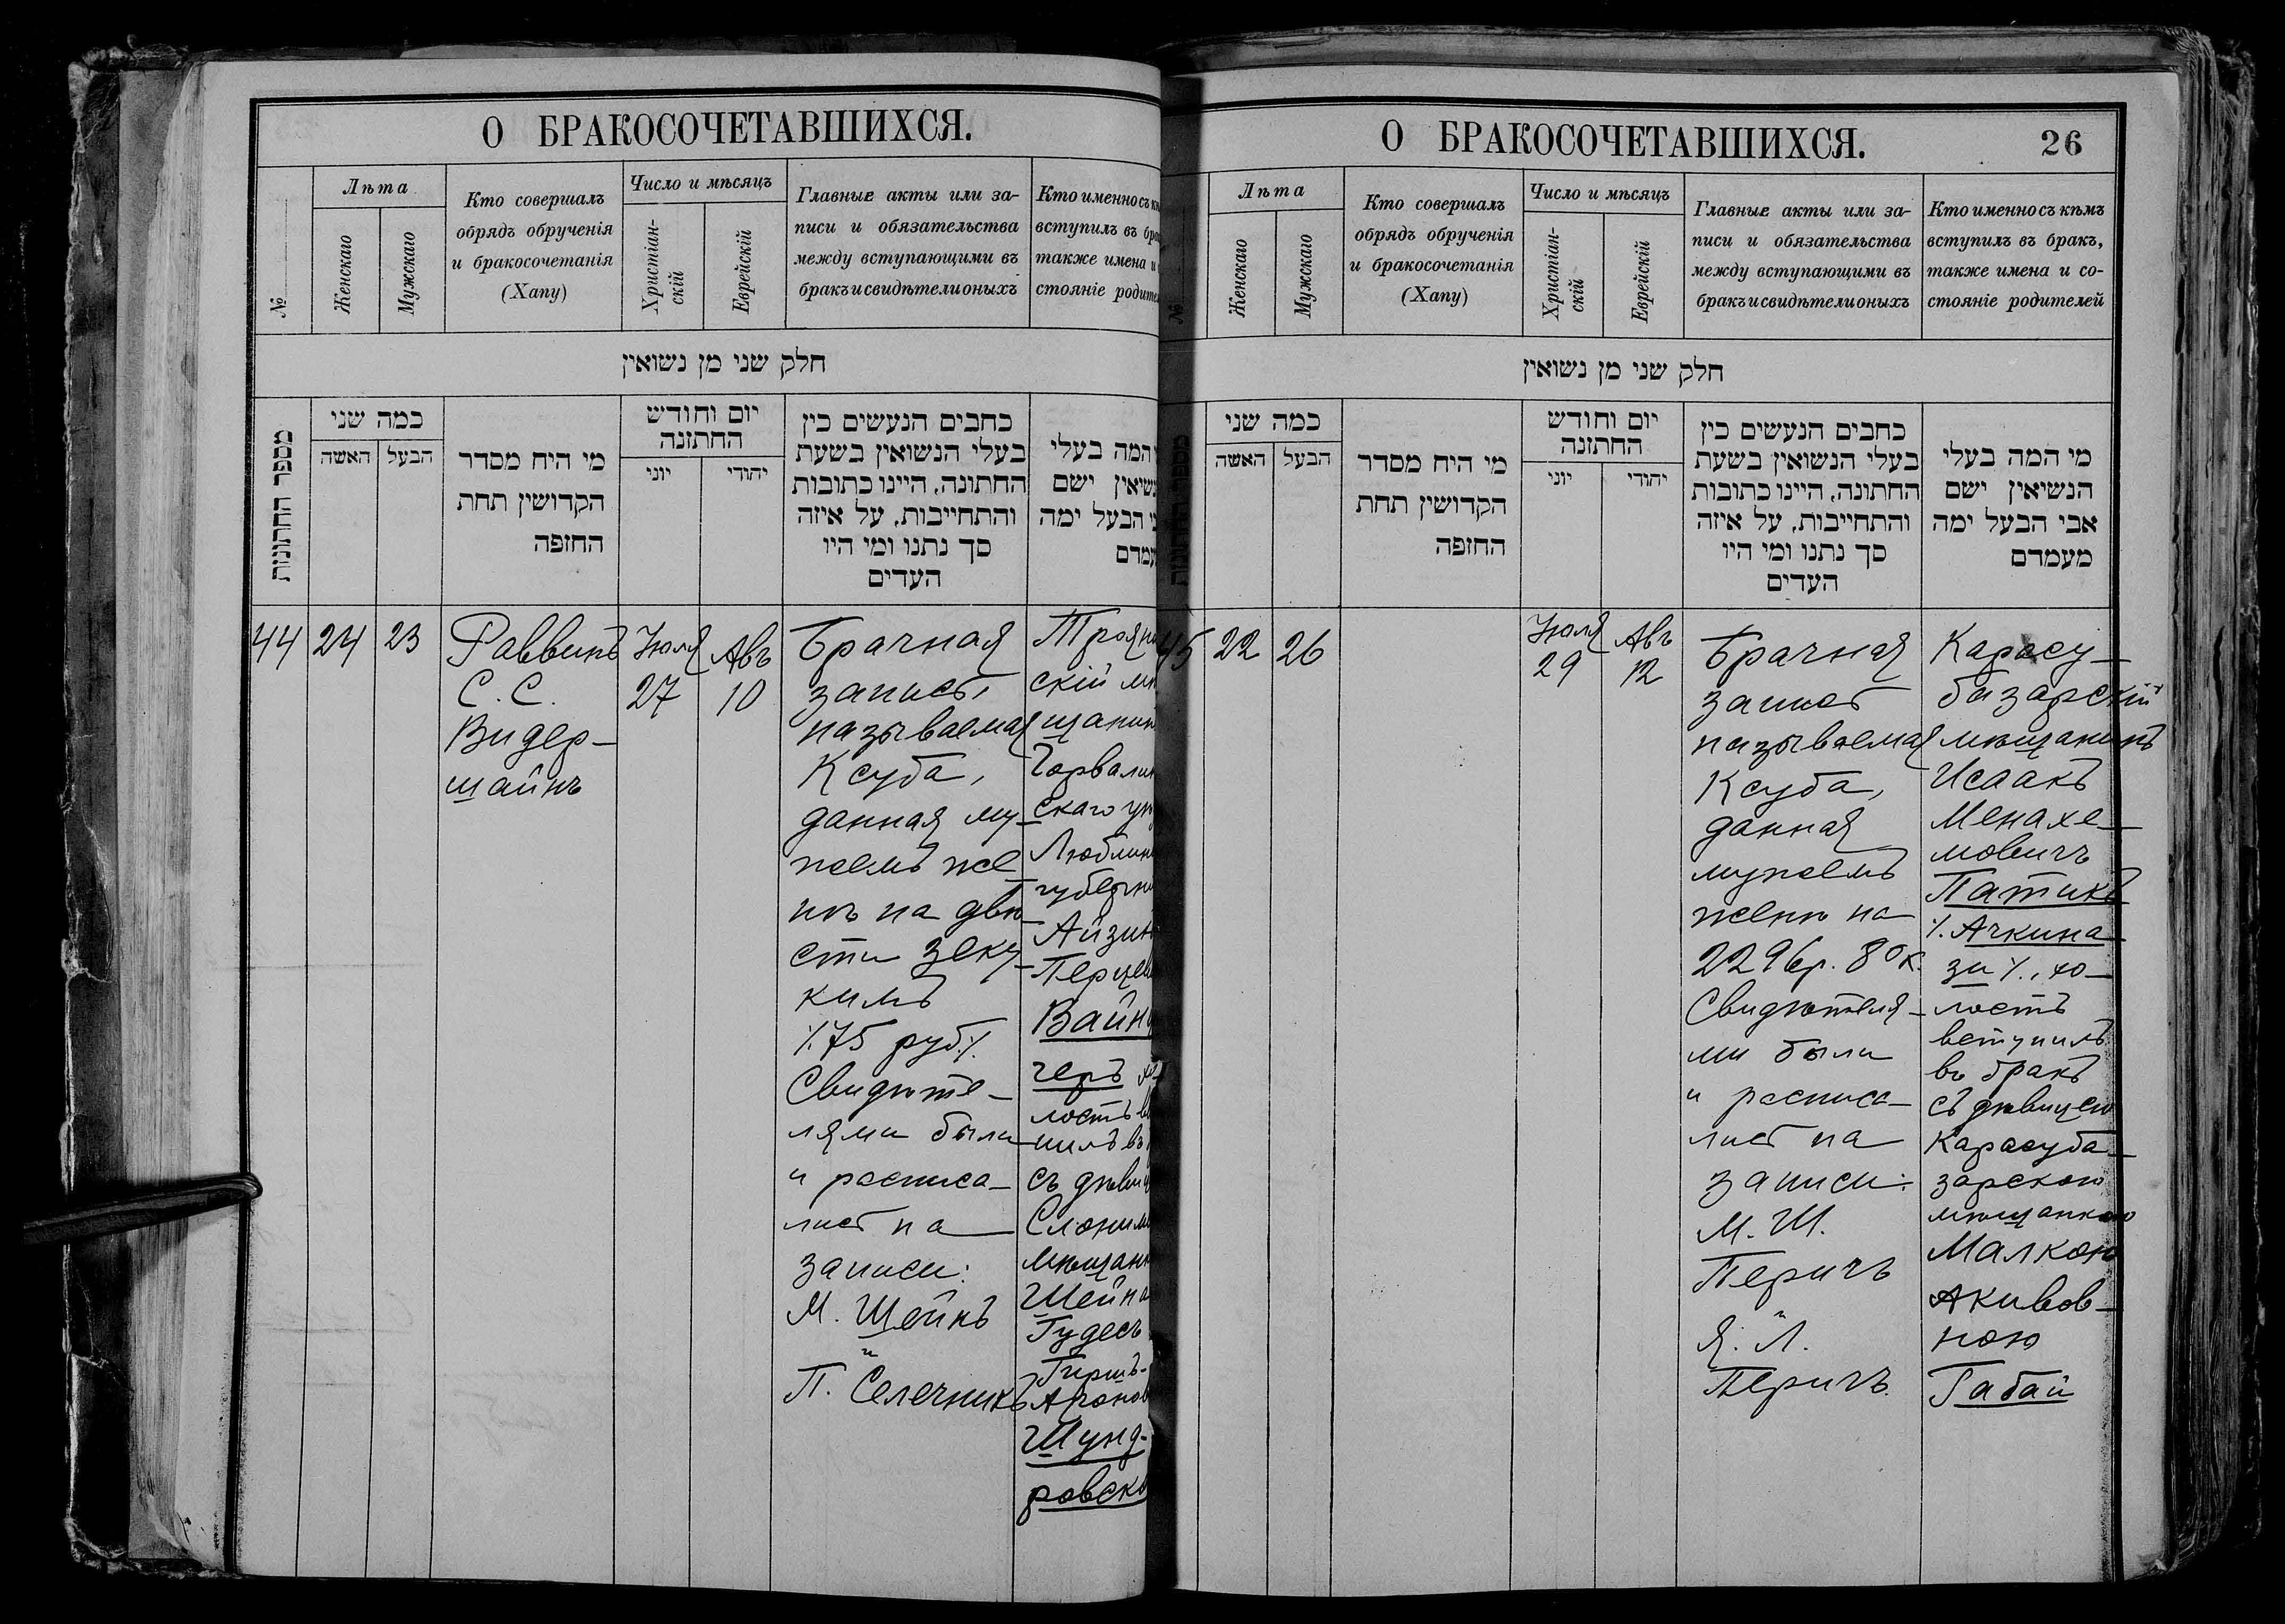 О БРАКОСОЧЕТАВШИХСЯ.
№
Лѣта
Женскаго
Мужскаго
Кто совершалъ
обрядъ обрученія
и бракосочетанія
(Хапу)
Число и мѣсяцъ
Христіан-
скій
Еврейскій
Главные акты или за-
писи и обязательства
между вступающими въ
бракъ и свидѣтели оныхъ
Кто именно съ
вступилъ въ
также имена и
стояніе
חלק שני מן נשואין
מספר החתונות
כמה שני
האשה
הבעל
מי היח מסדר
הקדושין תחת
החופה
יום וחודש
החתונה
יוני
יהודי
כתבים הנעשים בין
בעלי הנשואין בשעת
החתונה, היינו כתובות
והתחייבות, על איזה
סך נתנו ומי היו
העדים
המה בעלי
ישם
הבעל ימה
44
24
23
Раввинъ
С. С.
Видер-
шайнъ
Іюля
27
Авъ
10
Брачная
запись,
называемая
Ксуба,
данная му-
жемъ же-
нѣ на двѣ-
сти зеку-
кимъ
٪75 руб٪
Свидѣте-
лями были
и росписа-
лись на
записи:
М. Шейнъ
и
П. Селечникъ
скій
Айзикъ
Вайн
черъ
лостъ
съ
Шейна
Гудесъ
Гиршъ-
Шунд-
О БРАКОСОЧЕТАВШИХСЯ.
26
№
Лѣта
Женскаго
Мужскаго
Кто совершалъ
обрядъ обрученія
и бракосочетанія
(Хапу)
Число и мѣсяцъ
Христіан-
скій
Еврейскій
Главные акты или за-
писи и обязательства
между вступающими въ
бракъ и свидѣтели оныхъ
Кто именно съ кѣмъ
вступилъ въ бракъ,
также имена и со-
стояніе родителей
חלק שני מן נשואין
כמה שני
האשה
הבעל
מי היח מסדר
הקדושין תחת
החופה
יום וחודש
החתונה
יוני
יהודי
כתבים הנעשים בין
בעלי הנשואין בשעת
החתונה, היינו כתובות
והתחייבות, על איזה
סך נתנו ומי היו
העדים
מי המה בעלי
הנשיאין ישם
אבי הבעל ימה
מעמדם
45
22
26
Іюля
29
Авъ
12
Брачная
запись
называемая
Ксуба,
данная
мужемъ
женѣ на
2296р. 80к.
Свидѣтеля-
ми были
и росписа-
лись на
записи:
М. Ш.
Перичъ
и
Я. Л.
Перичъ.
Карасу-
базарскій
мѣщанинъ
Исаакъ
Менахе-
мовичъ
Патикъ
٪Ачкина-
зи٪, хо-
лостъ
вступилъ
въ бракъ
съ дѣвицею
Карасуба-
зарскою
мѣщанкою
Малкою
Акивов-
ною
Габай